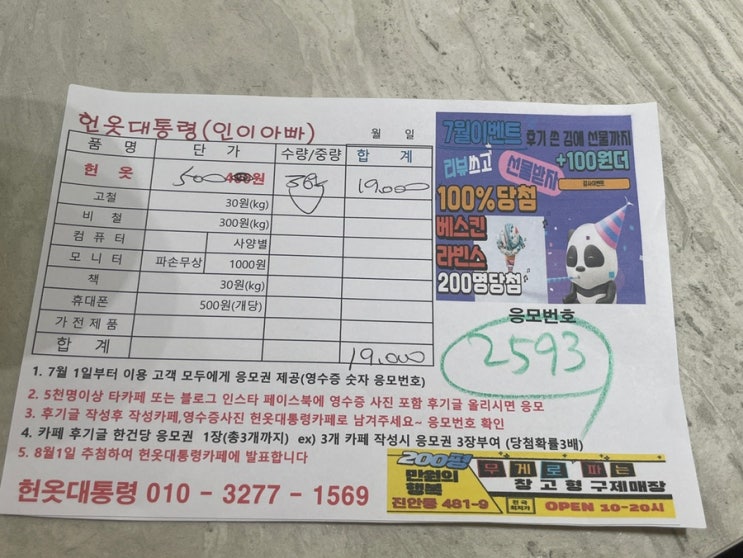 헌옷대통령(인이아빠)
월 일
품 명 단 가 수량/중량 합 계
헌 옷 500 400원 38k 19,000
고철 30원(kg)
비 철 300원(kg)
컴 퓨 터 사양별
모 니 터 파손무상 1000원
책 30원(kg)
휴대폰 500원(개당)
가전제품
합 계 19,000
7월이벤트 후기 쓴 김에 선물까지
리뷰쓰고 선물받자 +100원더
100%당첨
베스킨
라빈스
200명당첨
응모번호
2593
1. 7월 1일부터 이용 고객 모두에게 응모권 제공(영수증 숫자 응모번호)
2. 5천명이상 타카페 또는 블로그 인스타 페이스북에 영수증 사진 포함 후기글 올리시면 응모
3. 후기글 작성후 작성카페,영수증사진 헌옷대통령카페로 남겨주세요~ 응모번호 확인
4. 카페 후기글 한건당 응모권 1장(총3개까지) ex) 3개 카페 작성시 응모권 3장부여 (당첨확률3배)
5. 8월1일 추첨하여 헌옷대통령카페에 발표합니다
헌옷대통령 010 - 3277 - 1569
200평
만원의
행복
진안동 481-9
무게로파는
창고형 구제매장
전국
최저가
OPEN 10-20시